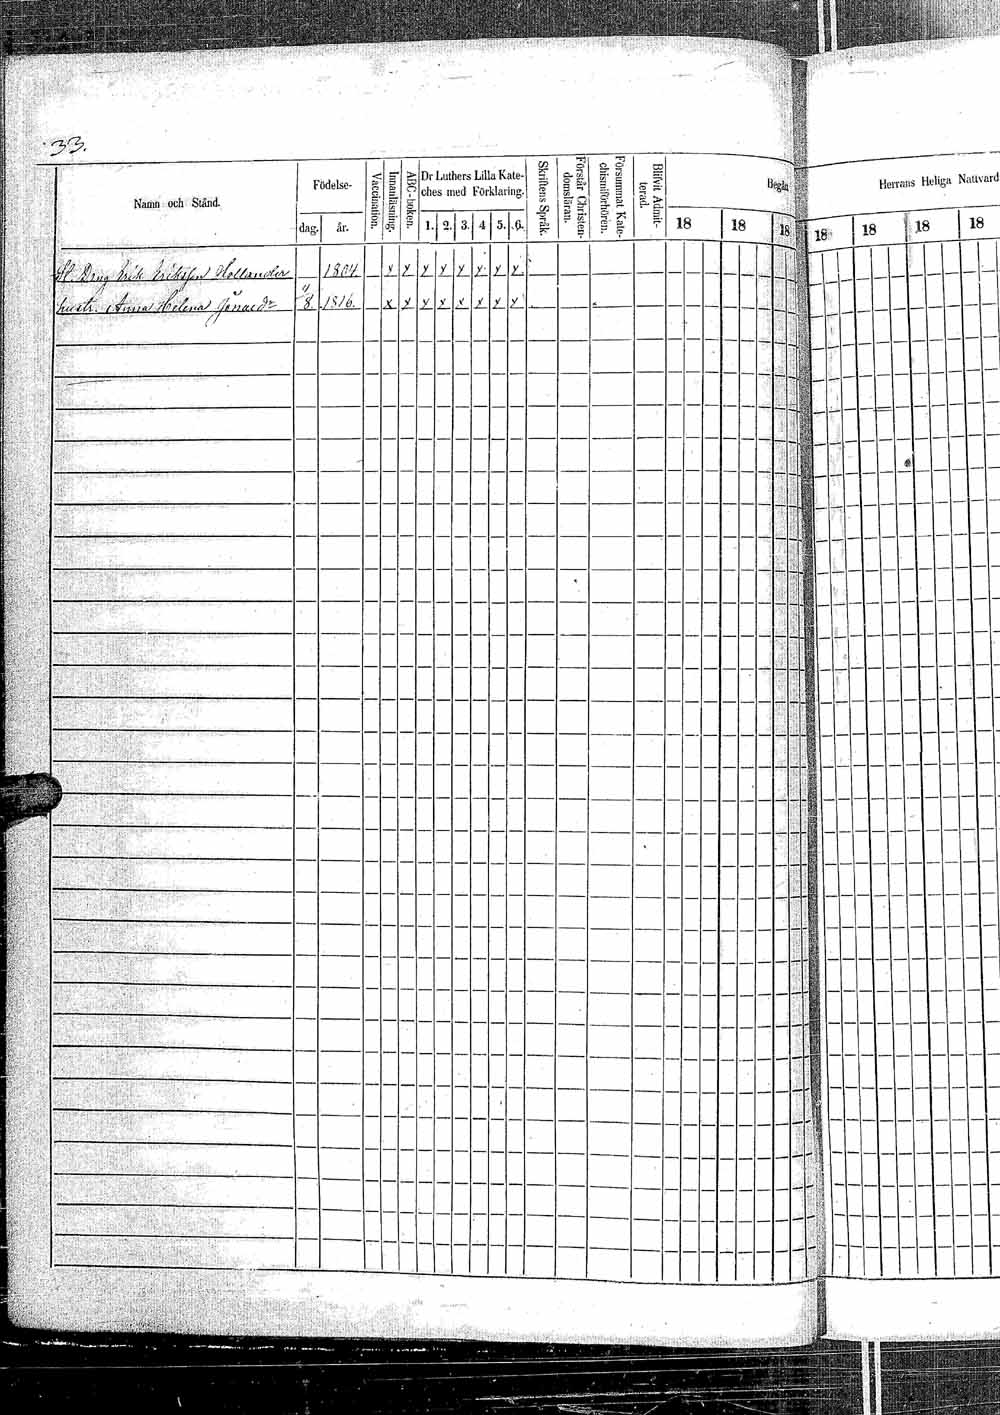 33.
Namn och Stånd.
Födelse-
dag.
år.
Vaccination.
Innanläsning.
ABC-boken.
Dr Luthers Lilla Kate-
ches med Förklaring.
1. 2. 3. 4 5. 6.
Skriftens Språk.
Förstår Christen-
domsläran.
Försummat Kate-
chismiförhören.
Blifvit Admit-
terad.
Begån
Herrans Heliga Nattvard
18 18 18 18 18 18 18
Erik Eriksson Hollander 1804 x x x x x x x x
hustr. Anna Helena 8 1816. x x x x x x x x